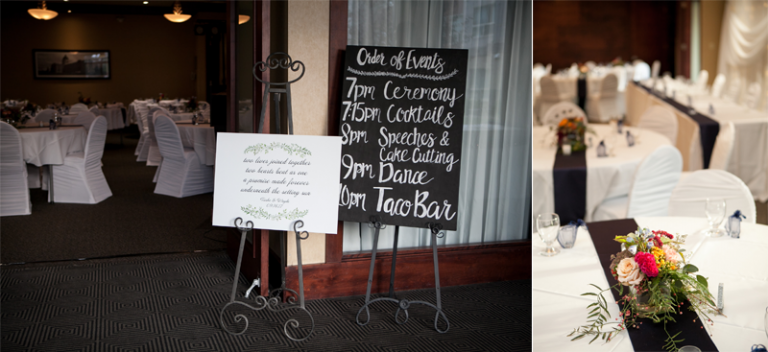 two lives joined in love
two hearts beat as one
a promise made forever
underneath the setting sun
Order of Events
7pm Ceremony
7:15pm Cocktails
8pm Speeches &
Cake Cutting
9pm Dance
10pm Taco Bar